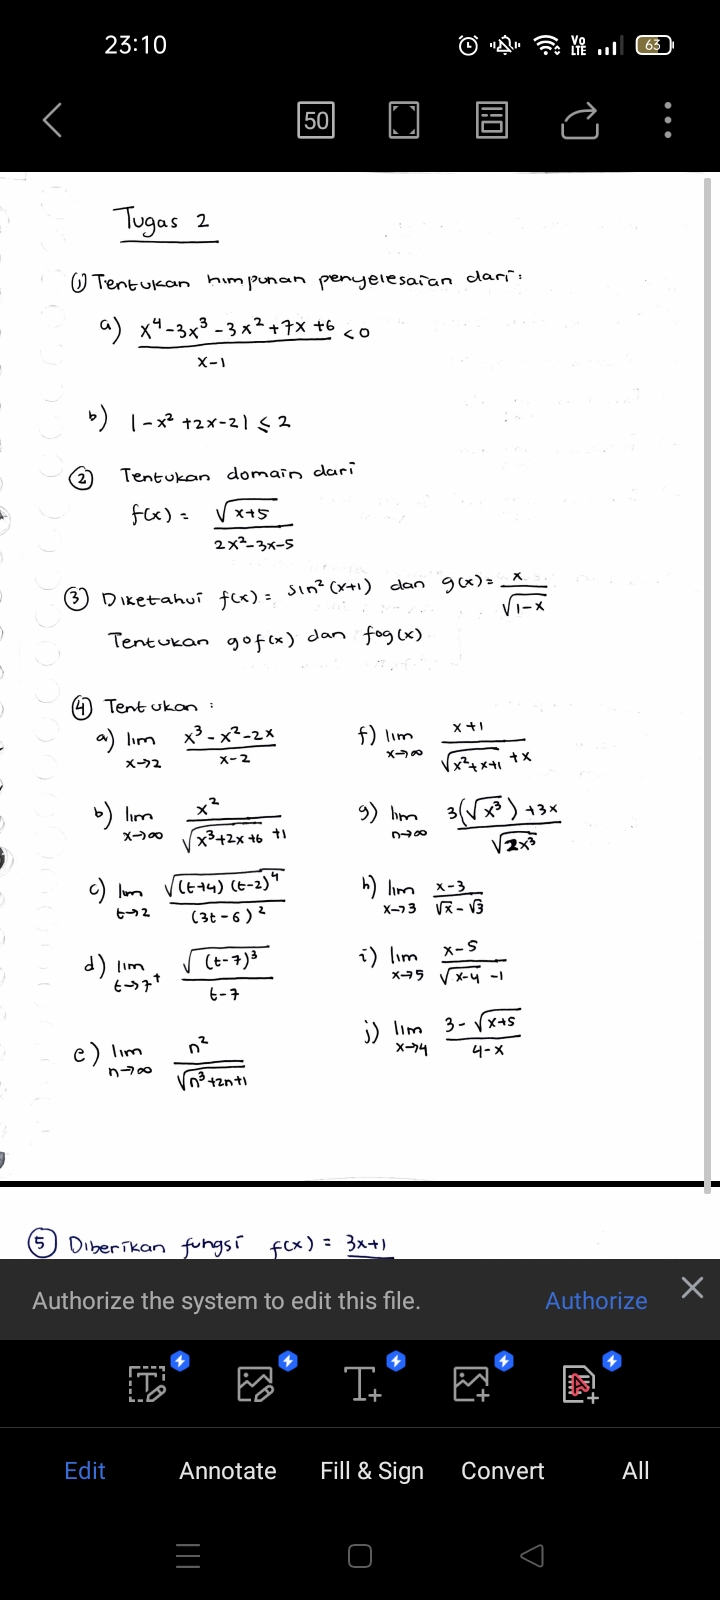 23:10
Vo LTE
63
50
Tugas 2
① Tentukan himpunan penyelesaian dari:
a) x⁴-3x³-3x²+7x+6 / x-1 < 0
b) |-x²+2x-2| ≤ 2
② Tentukan domain dari
f(x) = √(x+5) / 2x²-3x-5
③ Diketahui f(x) = sin²(x+1) dan g(x) = x / √(1-x)
Tentukan gof(x) dan fog(x)
④ Tentukan :
a) lim x→2 x³-x²-2x / x-2
b) lim x→∞ x² / √(x³+2x+6) +1
c) lim t→2 √((t+4)(t-2)⁴) / (3t-6)²
d) lim t→7⁺ √((t-7)³) / t-7
e) lim n→∞ n² / √(n³+2n+1)
f) lim x→∞ x+1 / √(x²+x+1) +x
g) lim n→∞ 3(√(x³)) +3x / √(2x³)
h) lim x→3 x-3 / √x - √3
i) lim x→5 x-5 / √(x-4) -1
j) lim x→4 3-√(x+5) / 4-x
⑤ Diberikan fungsi f(x) = 3x+1
Authorize the system to edit this file.
Authorize
Edit
Annotate
Fill & Sign
Convert
All